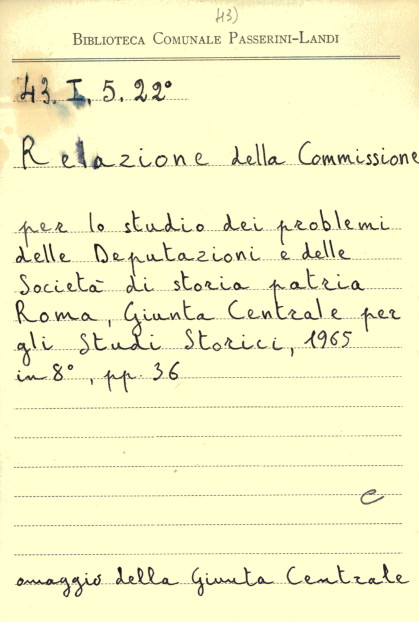 43)
BIBLIOTECA COMUNALE PASSERINI-LANDI
43. I. 5. 22°
Relazione della Commissione
per lo studio dei problemi
delle Deputazioni e delle
Società di storia patria
Roma, Giunta Centrale per
gli Studi Storici, 1965
in 8°, pp. 36
C
omaggio della Giunta Centrale